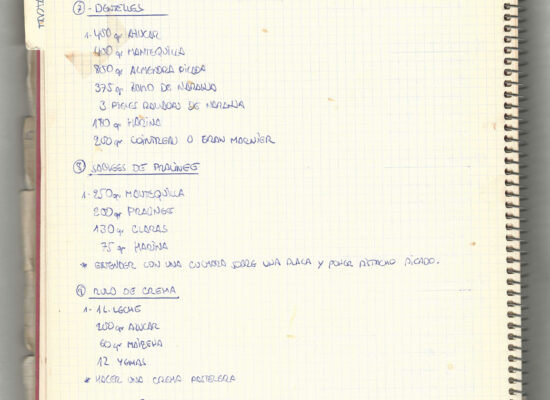 7 - DENTELLES
1- 450 gr AZUCAR
400 gr MANTEQUILLA
850 gr ALMENDRA PICADA
375 gr ZUMO DE NARANJA
3 PIELES RALLADAS DE NARANJA
180 gr HARINA
200 gr COINTREAU O GRAN MARNIER
8 DE PRALINEE
1- 250 gr MANTEQUILLA
200 gr PRALINEE
130 gr CLARAS
75 gr HARINA
* EXTENDER CON UNA CUCHARA SOBRE UNA PLACA Y PONER PISTACHO PICADO.
9 RULO DE CREMA
1- 1L. LECHE
200 gr AZUCAR
60 gr MAIZENA
12 YEMAS
* HACER UNA CREMA PASTELERA